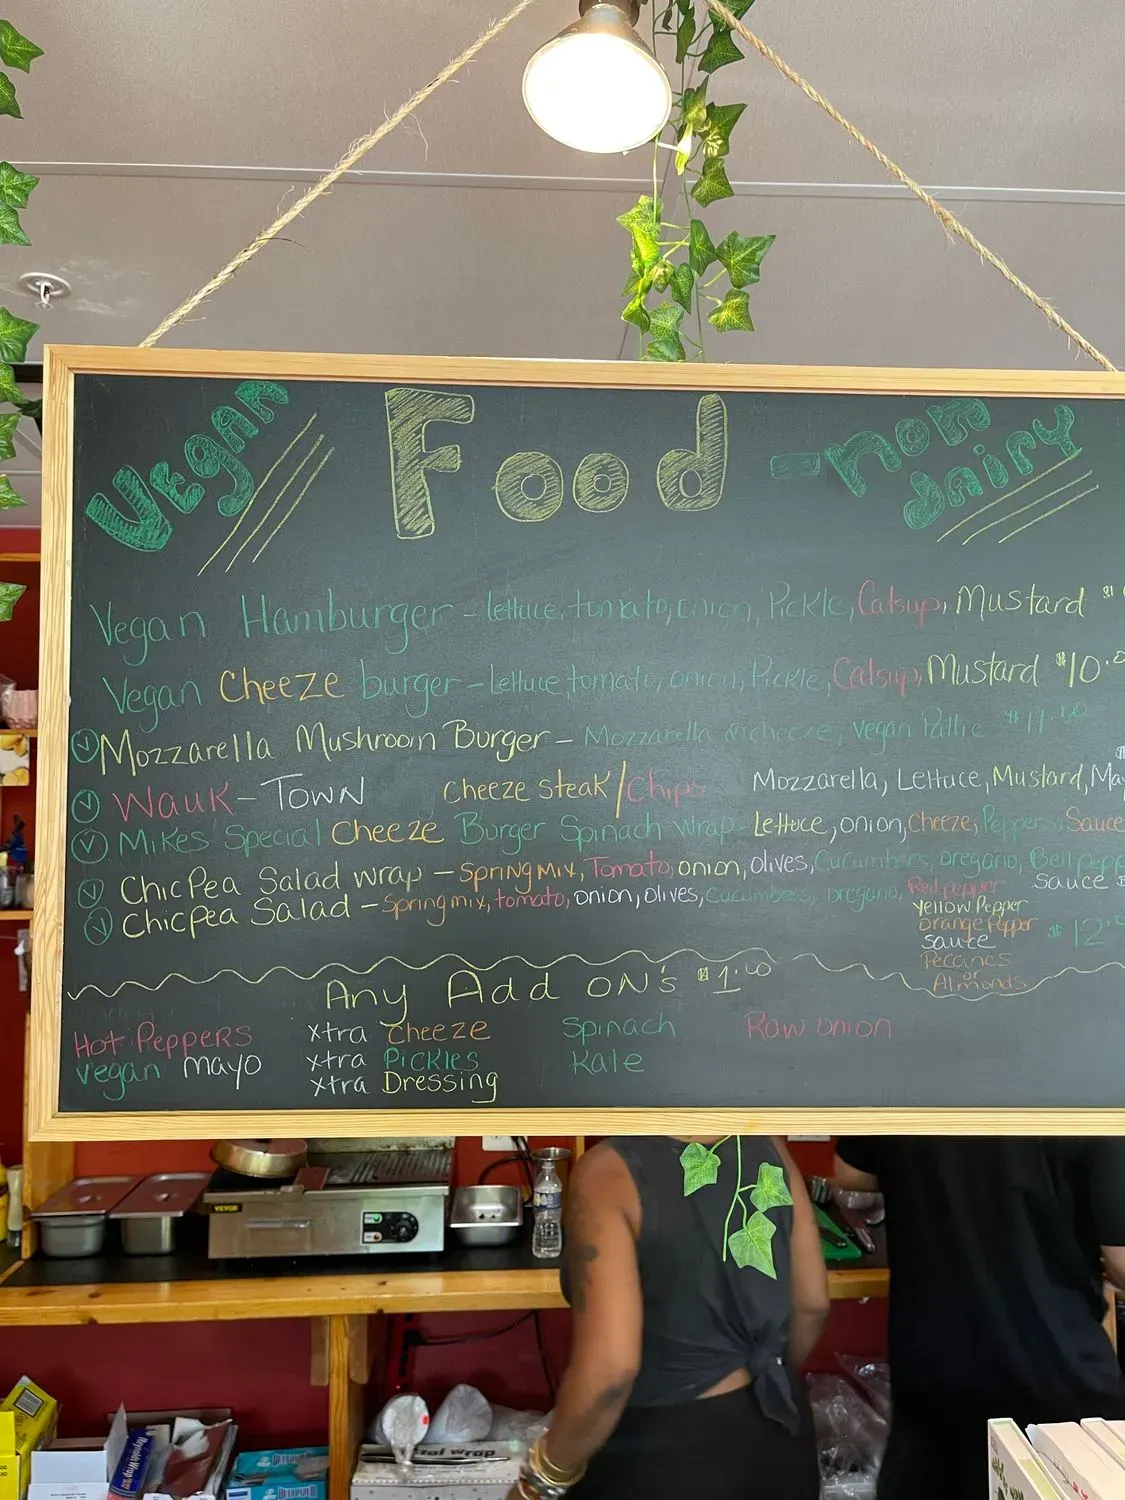 Vegan Food - non dairy
Vegan Hamburger - lettuce, tomato, onion, Pickle, Catsup, Mustard $
Vegan Cheeze burger - Lettuce, tomato, onion, Pickle, Catsup, Mustard $10.0
Mozzarella Mushroom Burger - Mozzarella cheeze, vegan Pattie $11.00
Wauk-Town Cheeze Steak/Chips Mozzarella, Lettuce, Mustard, May
Mikes' Special Cheeze Burger Spinach Wrap - Lettuce, onion, Cheeze, Peppers, Sauce
ChicPea Salad wrap - Spring Mix, Tomato, onion, olives, Cucumbers, oregano, Bell pepp
Sauce
Chicpea Salad - Spring mix, tomato, onion, olives, Cucumbers, oregano, Red pepper
Yellow Pepper
Orange Pepper
Sauce $12.0
Pecancs
or
Almonds
Any Add ON's $1.00
Hot Peppers xtra Cheeze Spinach Raw onion
Vegan mayo xtra Pickles Kale
xtra Dressing
VEVOR
Reynolds Wrap
wrap